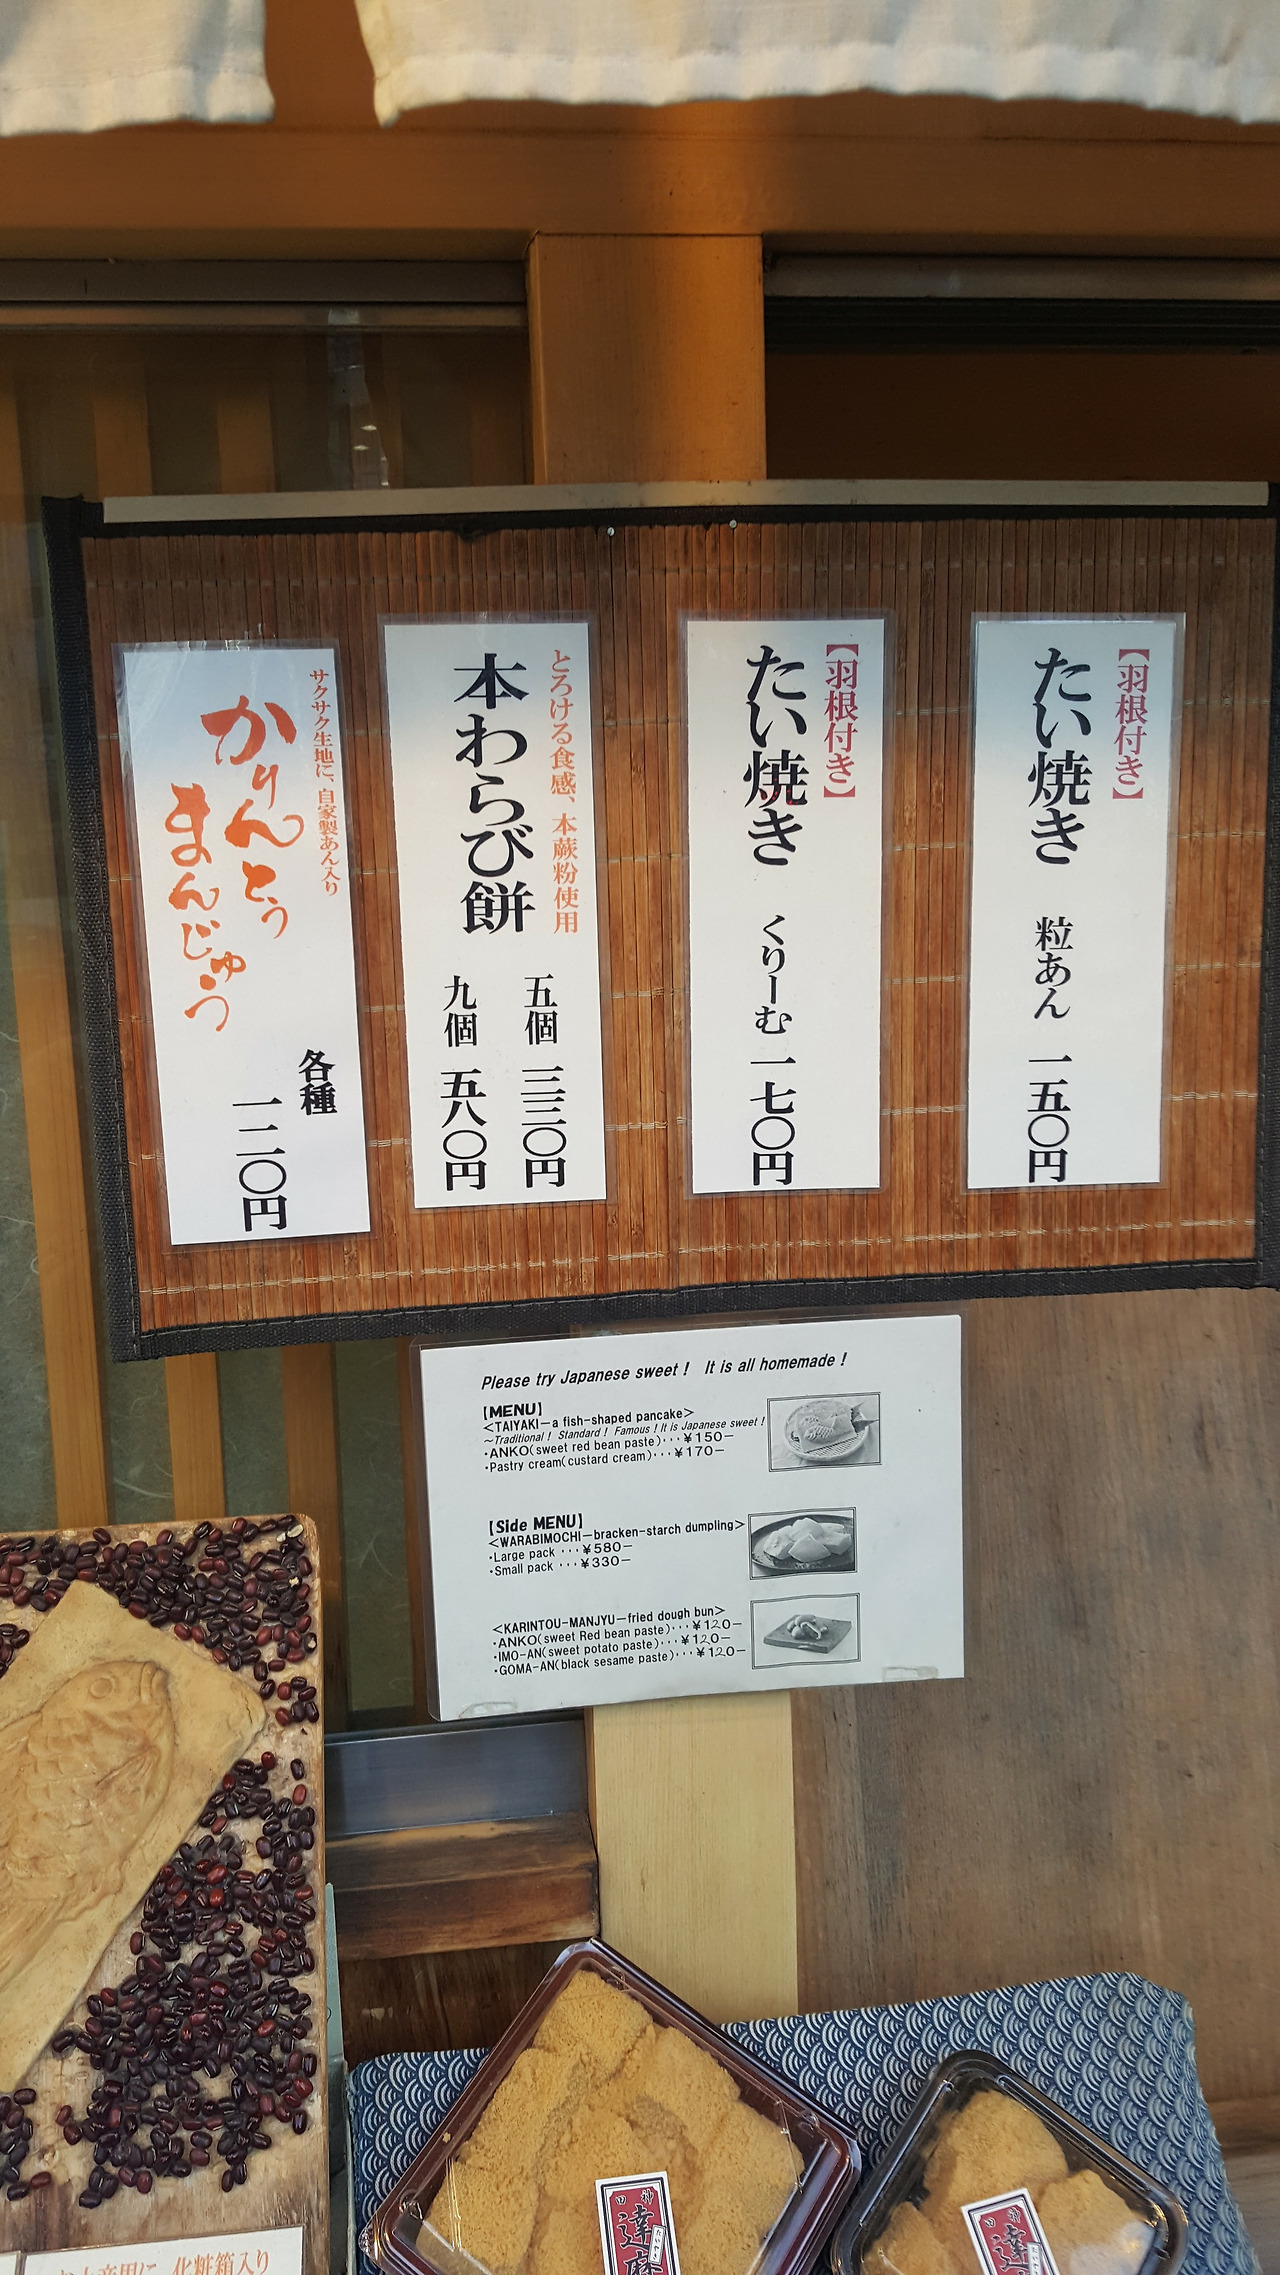 【羽根付き】
たい焼き 粒あん 一五〇円
【羽根付き】
たい焼き くりーむ 一七〇円
とろける食感、本蕨粉使用
本わらび餅
五個 三三〇円
九個 五八〇円
サクサク生地に、自家製あん入り
かりんとう
まんじゅう
各種
一二〇円
Please try Japanese sweet! It is all homemade!
【MENU】
<TAIYAKI-a fish-shaped pancake>
~Traditional! Standard! Famous! It is Japanese sweet!
・ANKO(sweet red bean paste)・・・¥150-
・Pastry cream(custard cream)・・・¥170-
【Side MENU】
<WARABIMOCHI-bracken-starch dumpling>
・Large pack ・・・¥580-
・Small pack ・・・¥330-
<KARINTOU-MANJYU-fried dough bun>
・ANKO(sweet Red bean paste)・・・¥120-
・IMO-AN(sweet potato paste)・・・¥120-
・GOMA-AN(black sesame paste)・・・¥120-
神田
達磨
神田
達
化粧箱入り